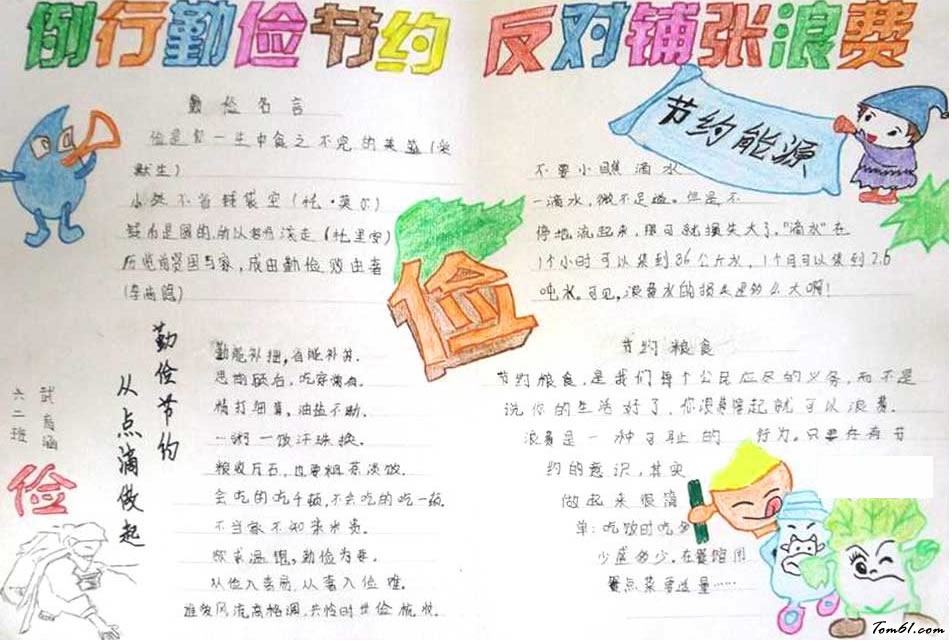 例行勤俭节约 反对铺张浪费
勤俭名言
俭是你一生中食之不完的美筵(爱
默生)
小处不省钱袋空(托·英尔)
钱币是圆的,所以容易滚走(托里安)
历览前贤国与家,成由勤俭败由奢
(李商隐)
节约能源
不要小瞧滴水
一滴水,微不足道。但是不
停地流起来,那可就损失大了。"滴水"在
1个小时可以集到3.6公斤水,1个月可以集到2.6
吨水。可见,浪费水的损失是多么大啊!
俭
勤俭节约
从点滴做起
武
涵
六二班
俭
勤能补拙,省能补贫。
吃穿常有。
精打细算,油盐不断。
一粥一饭汗珠换。
粮收万石,也要粗茶淡饭。
会吃的吃千顿,不会吃的吃一顿。
不当家不知柴米贵。
欲求温饱,勤俭为要。
从俭入奢易,从奢入俭难。
谁爱风流高格调,共怜时世俭梳妆。
节约粮食
节约粮食,是我们每个公民应尽的义务,而不是
说你的生活好了,你浪费得起就可以浪费。
浪费是一种可耻的 行为。只要存有节
约的意识,其实
做起来很简
单:吃饭时吃多
少盛多少,在餐馆用
餐点菜要适量……
Tom61.com